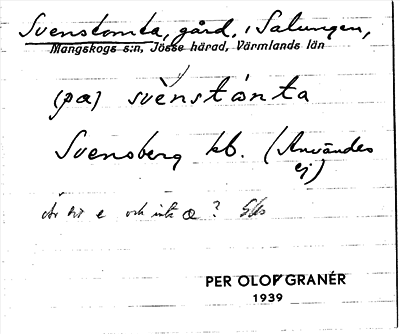 Svenstomta, gård, i Salungen,
Mangskogs s:n, Jösse härad, Värmlands län
(pa) svènstómta
Svensberg kb. (Användes
ej)
är det e och inte æ?
PER OLOF GRANÉR
1939